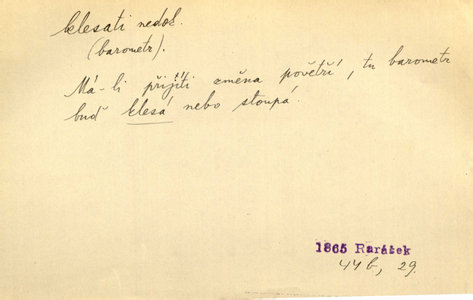 klesati nedok.
(barometr).
Má-li přijíti změna povětří, tu barometr
buď klesá nebo stoupá.
1865 Rarášek
44b, 29.